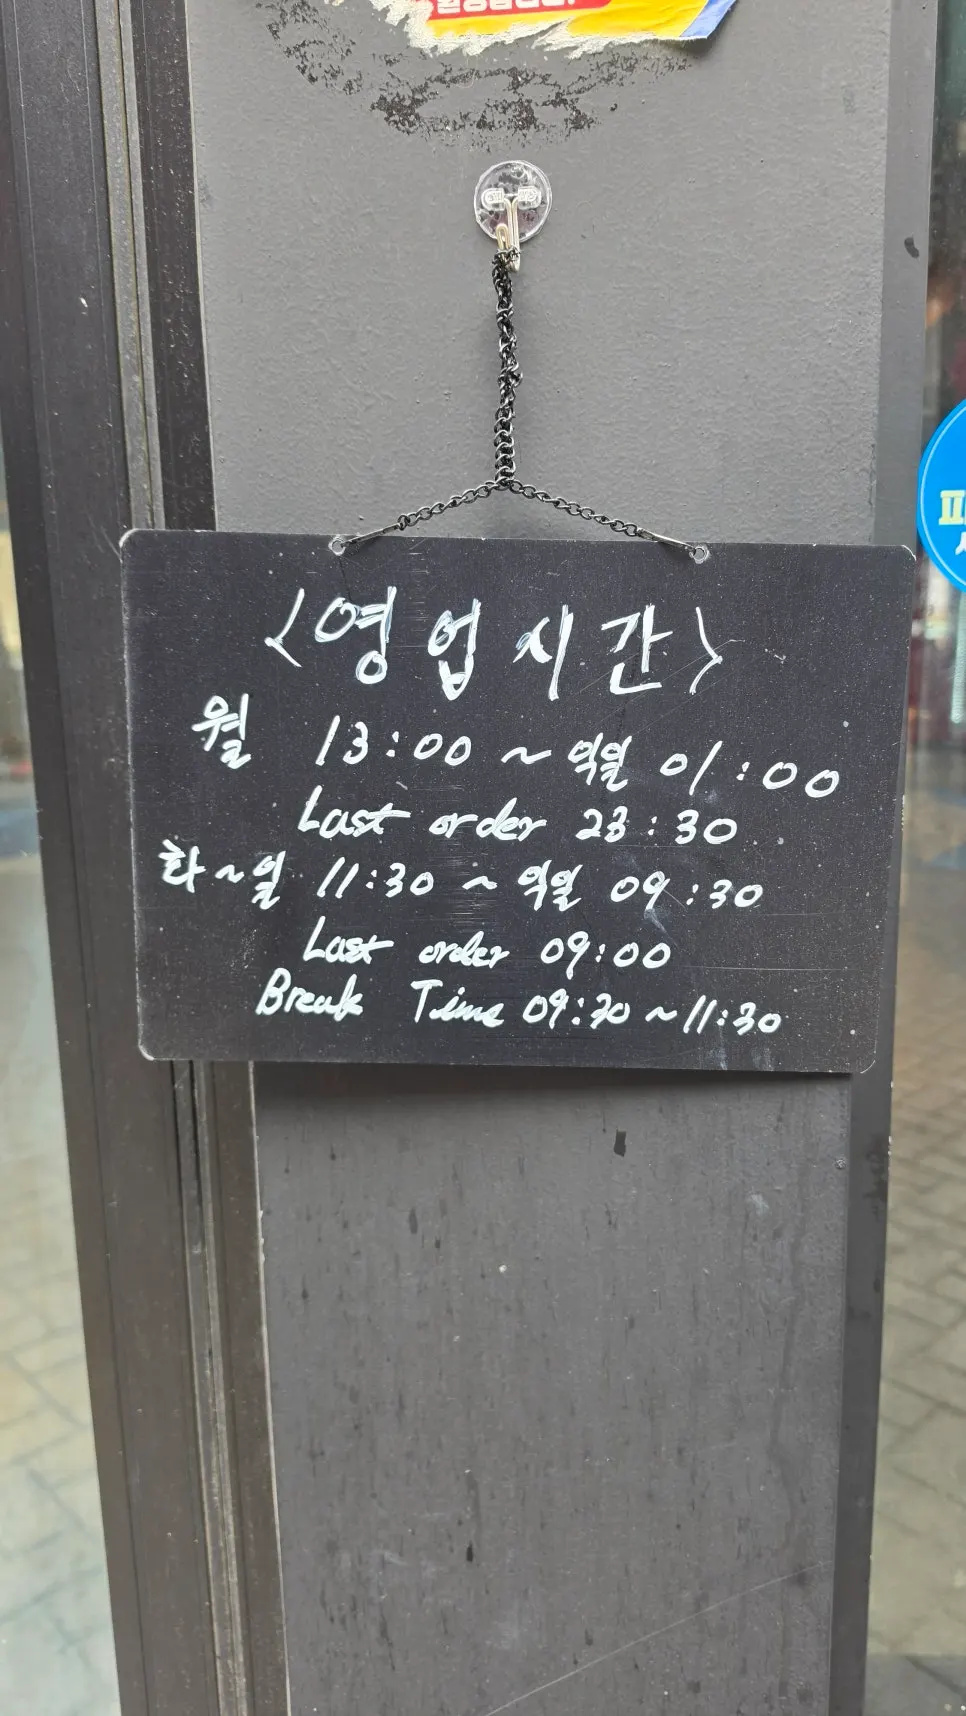 <영업시간>
월 13:00 ~ 익월 01:00
Last order 23:30
화~일 11:30 ~ 익일 09:30
Last order 09:00
Break Time 09:30 ~ 11:30